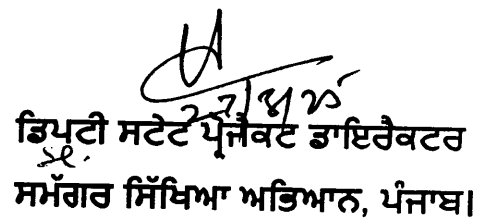 ਡਿਪਟੀ ਸਟੇਟ ਪ੍ਰੋਜੈਕਟ ਡਾਇਰੈਕਟਰ
ਸਮੱਗਰ ਸਿੱਖਿਆ ਅਭਿਆਨ, ਪੰਜਾਬ।